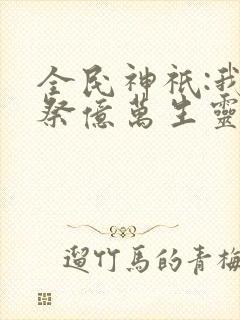 全民神祇:我
祭億萬生靈
遛竹馬的青梅